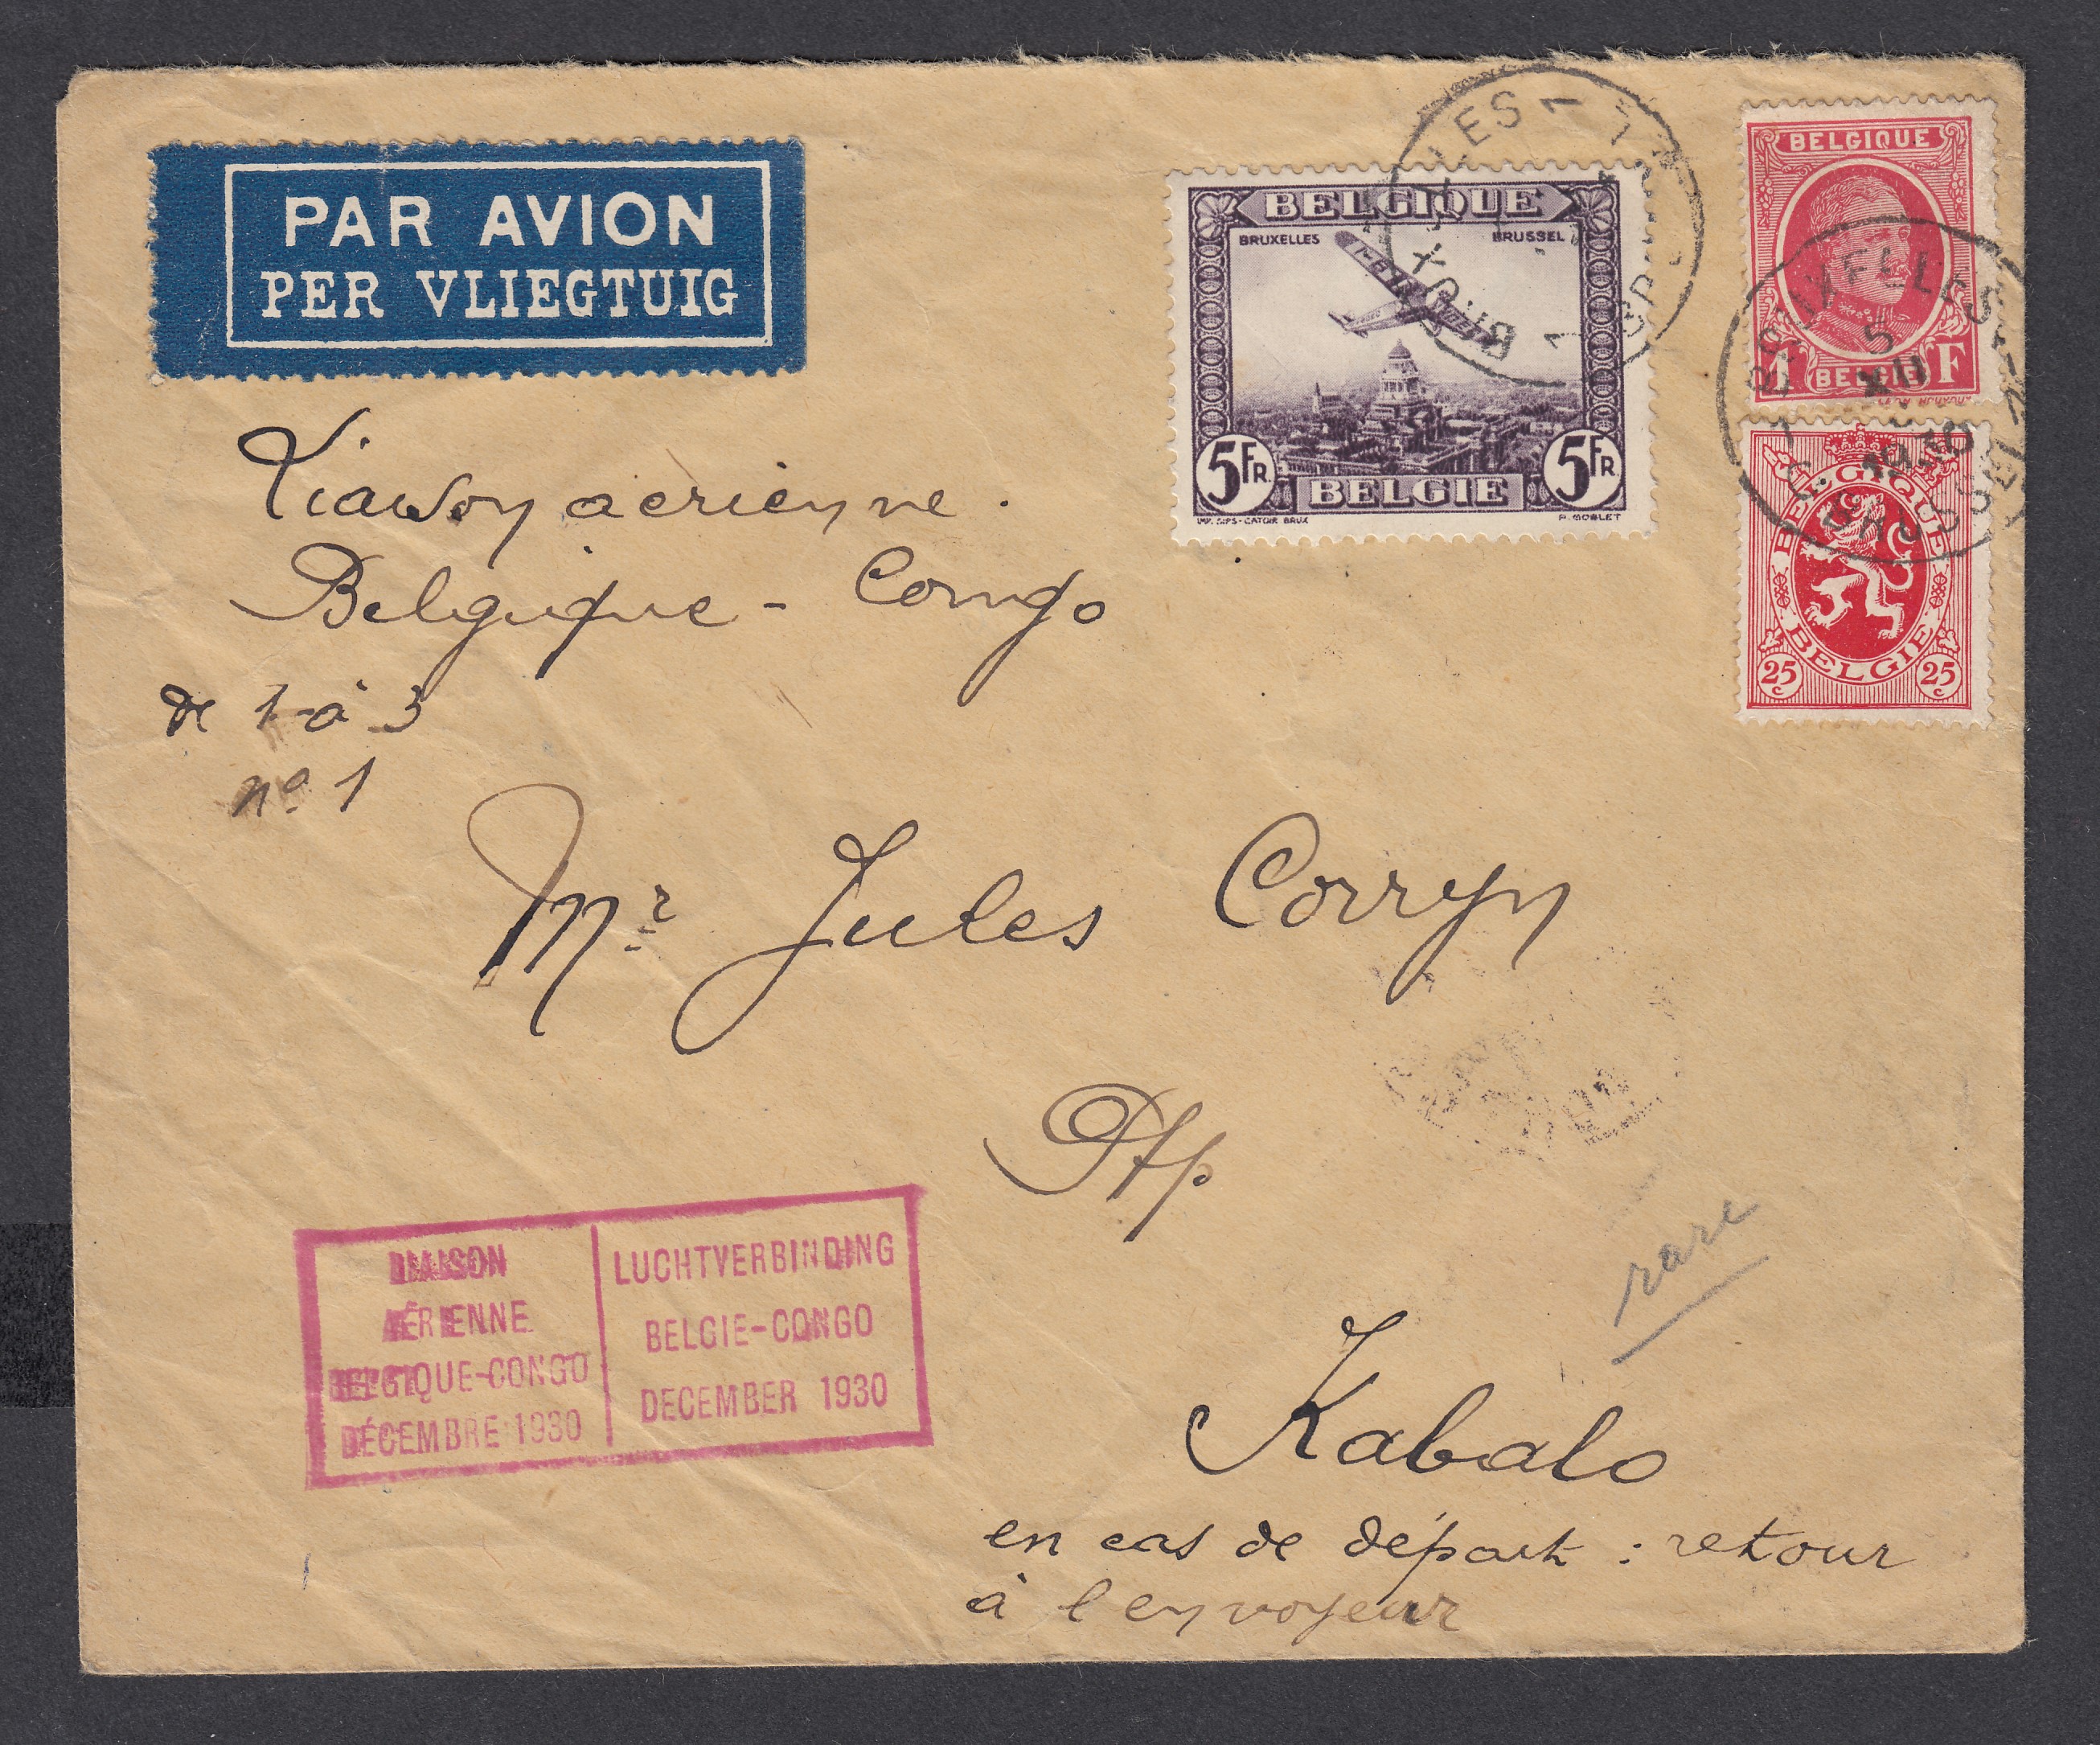 PAR AVION
PER VLIEGTUIG
BELGIQUE
BRUXELLES BRUSSEL
5FR. 5FR
BELGIE
IMP. SIPS-CATOIR BRUX P. NOBLET
BELGIQUE
1 BELGIE F
BELGIQUE
BELGIE
25c 25c
BRUXELLES 1
BRUSSEL 1
BRUXELLES
5
XII
1930
BRUSSEL
Liaison aérienne.
Belgique - Congo
de 1 à 3
nº 1
Mr Jules Corryn
Otp
Kabalo
en cas de départ : retour
à l'envoyeur
rare
LIAISON
AÉRIENNE
BELGIQUE-CONGO
DÉCEMBRE 1930
LUCHTVERBINDING
BELGIE-CONGO
DECEMBER 1930